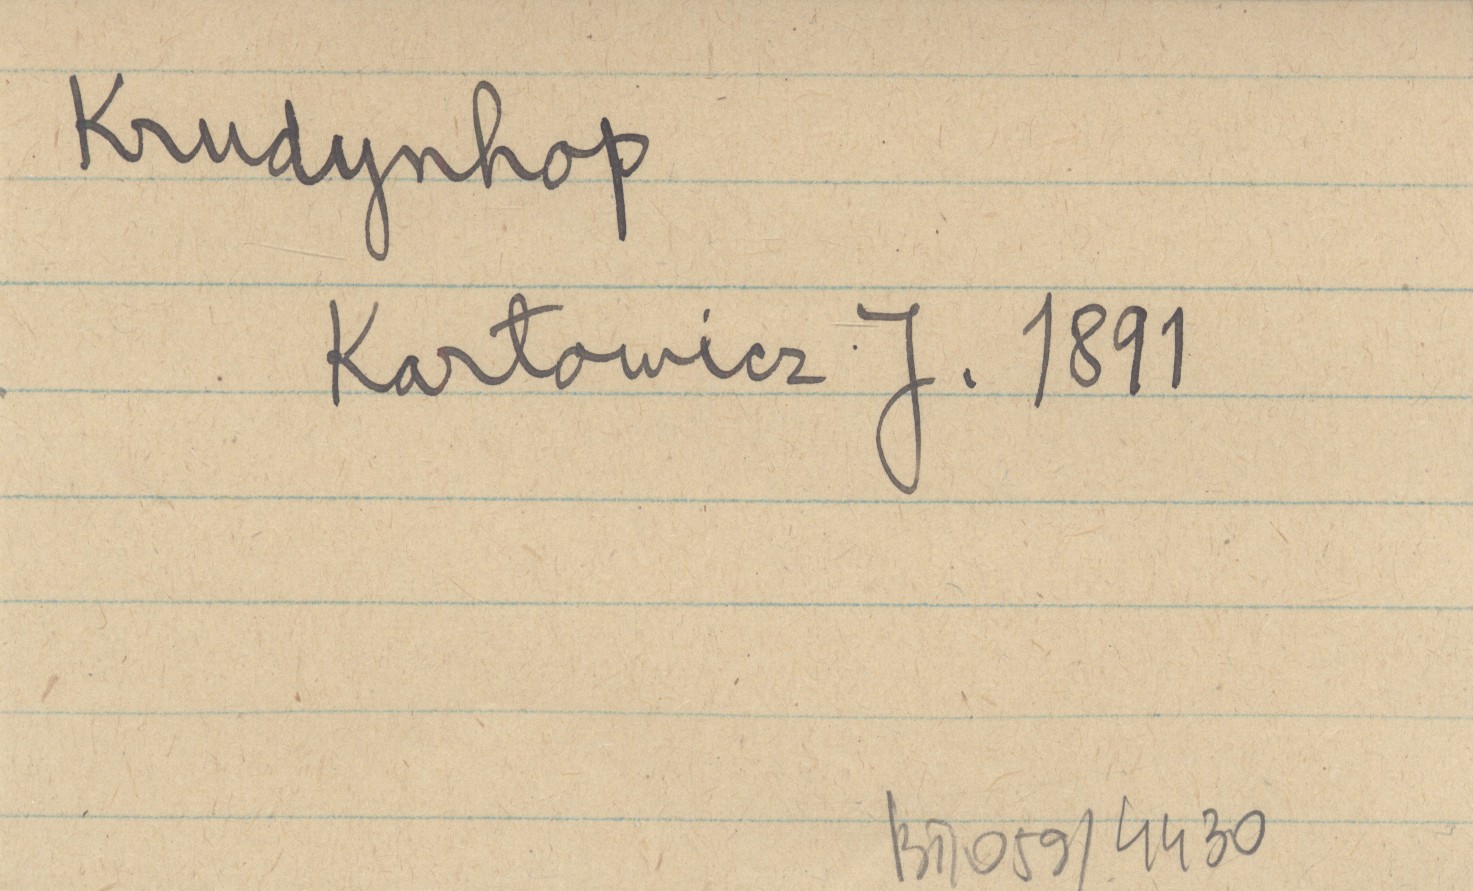 Krudynhop
Karłowicz J. 1891
4430